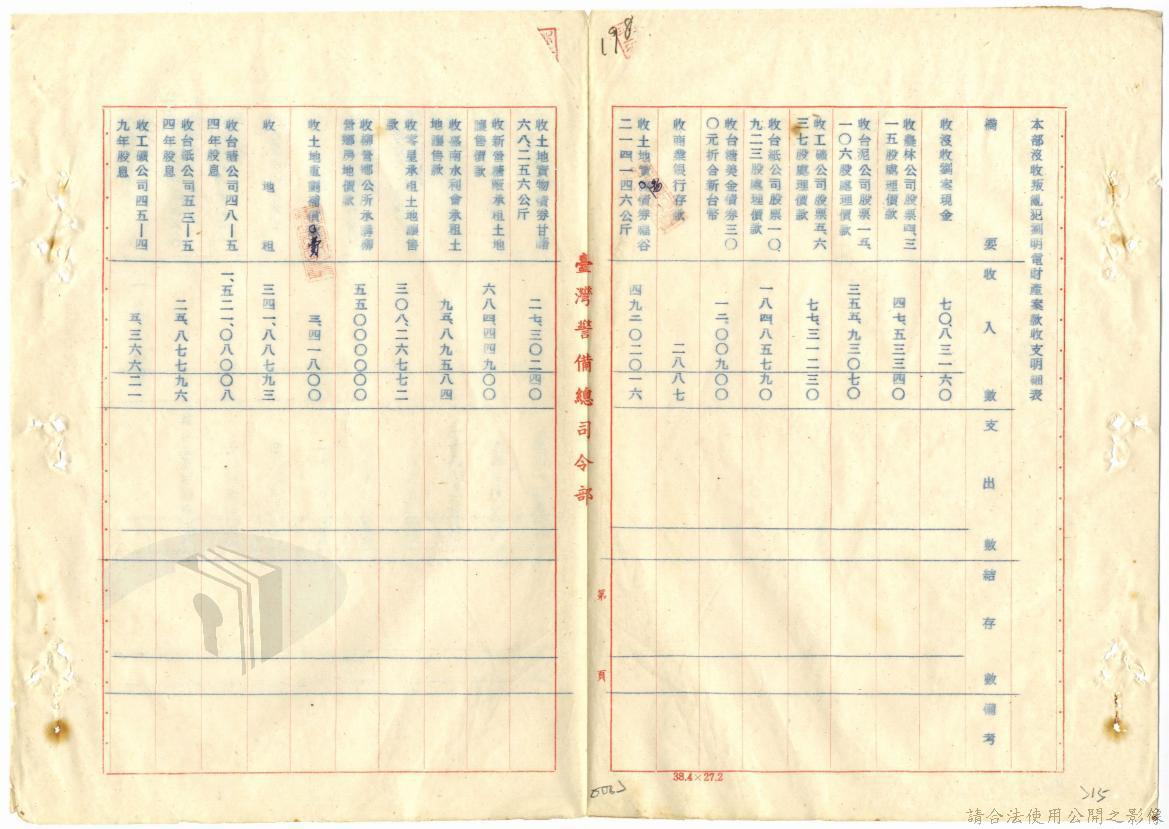 198
本部沒收叛亂犯劉明電財產案款收支明細表
摘要
收入數
支出數
結存數
備考
收沒收劉案現金
七〇、八三一六〇
收農林公司股票四、三
一五股處理價款
四七、五三三四〇
收台泥公司股票一五、
一〇六股處理價款
三五五、九三〇七〇
收工礦公司股票五、六
三七股處理價款
七七、三一二三〇
收台紙公司股票一〇、
九二三股處理價款
一八四、八五七九〇
收台糖美金債券三〇
〇元折合新台幣
一二、〇〇九〇〇
收商業銀行存款
二八八七
收土地實物債券稻谷
二一四一四六公斤
四九二、〇二〇一六
臺灣警備總司令部
第 頁
收土地實物債券甘藷
六八、二五六公斤
二七、三〇二四〇
收新營糖廠承租土地
讓售價款
六八四、四四九〇〇
收嘉南水利會承租土
地讓售款
九五、八九五八四
收零星承租土地讓售
款
三〇八、二六七七二
收柳營鄉公所承購柳
營鄉房地價款
五五〇、〇〇〇〇〇
收土地重劃補償費
三、四一八〇〇
收地租
三四一、八八七九三
收台糖公司四八—五
四年股息
一、五二一、〇八〇〇八
收台紙公司五三—五
四年股息
二五、八七七九六
收工礦公司四五—四
九年股息
五、三六六二一
38.4×27.2
請合法使用公開之影像